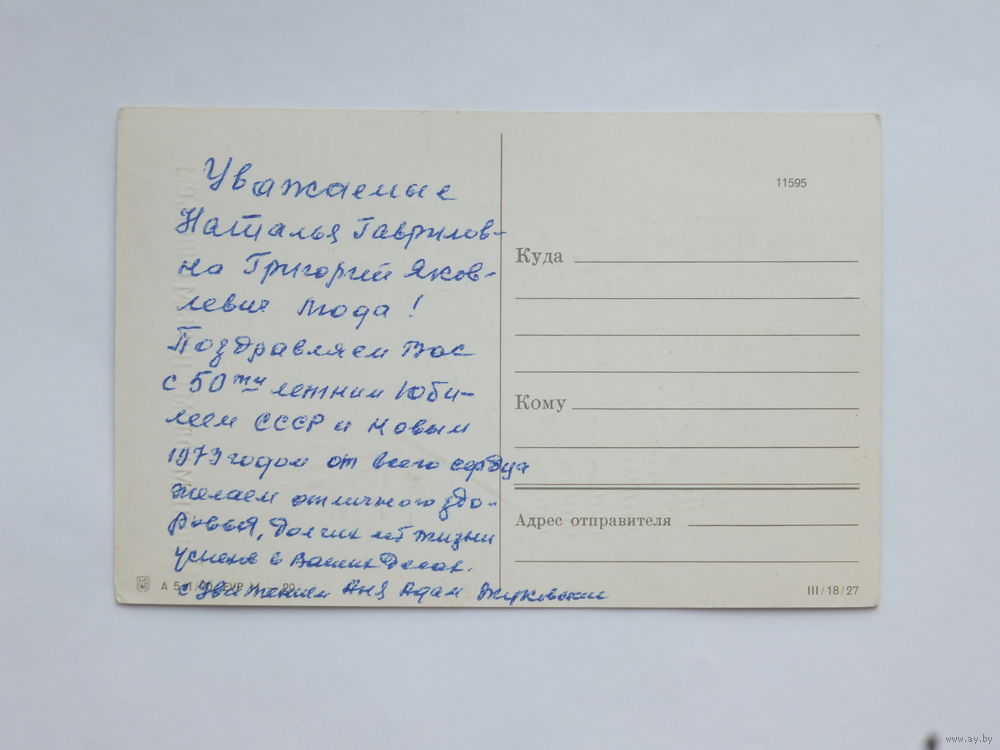 Уважаемые
Наталья Гаврилов-
на Григорий Яков-
левич Люда!
Поздравляем Вас
с 50ти летним Юби-
леем СССР и Новым
1973 годом от всего сердца
желаем отличного здо-
ровья, долгих лет жизни
успехов в Ваших Делах.
с уважением Аня Адам Жуковские
11595
Куда
Кому
Адрес отправителя
III/18/27
www.ay.by